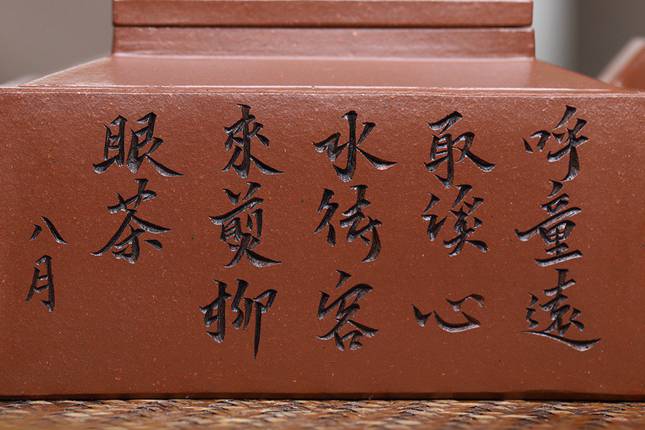 呼童遠
取溪心
水待客
來煎柳
眼茶
八月